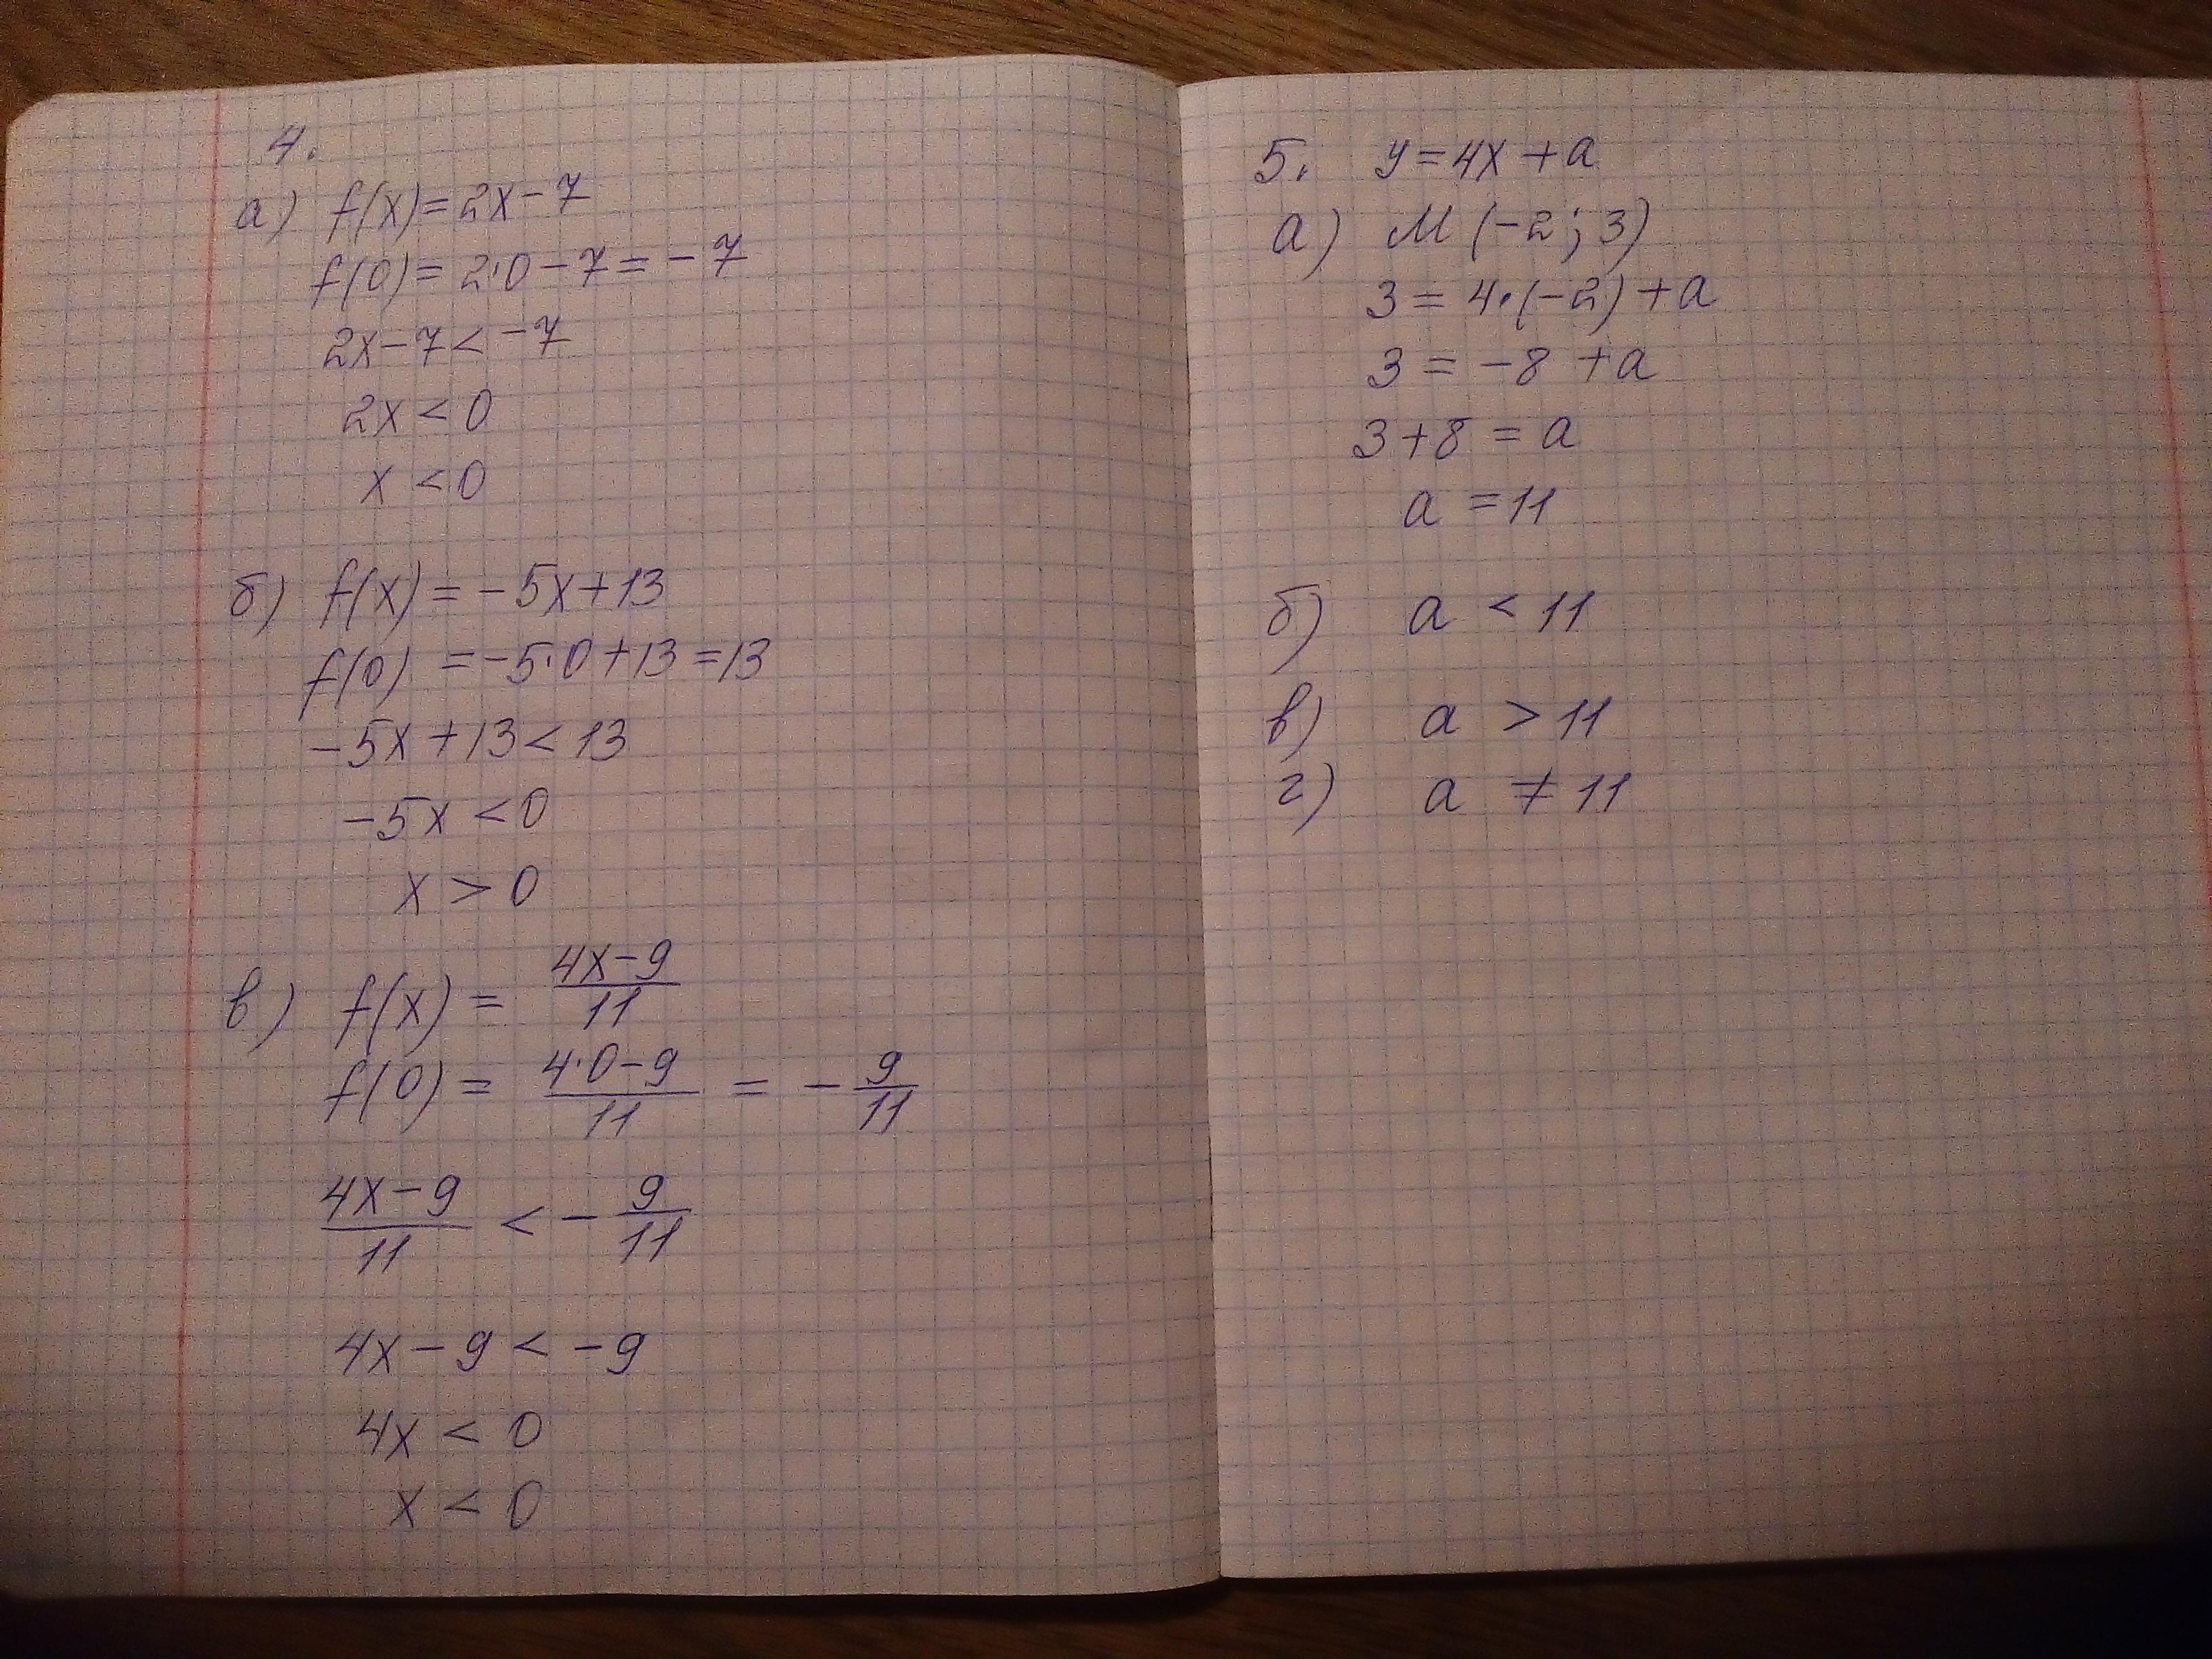 4.
а) f(x)=2x-7
f(0)=2·0-7=-7
2x-7<-7
2x<0
x<0
б) f(x)=-5x+13
f(0)=-5·0+13=13
-5x+13<13
-5x<0
x>0
в) f(x)=(4x-9)/11
f(0)=(4·0-9)/11=-9/11
(4x-9)/11<-9/11
4x-9<-9
4x<0
x<0
5. y=4x+a
а) M(-2;3)
3=4·(-2)+a
3=-8+a
3+8=a
a=11
б) a<11
в) a>11
г) a≠11